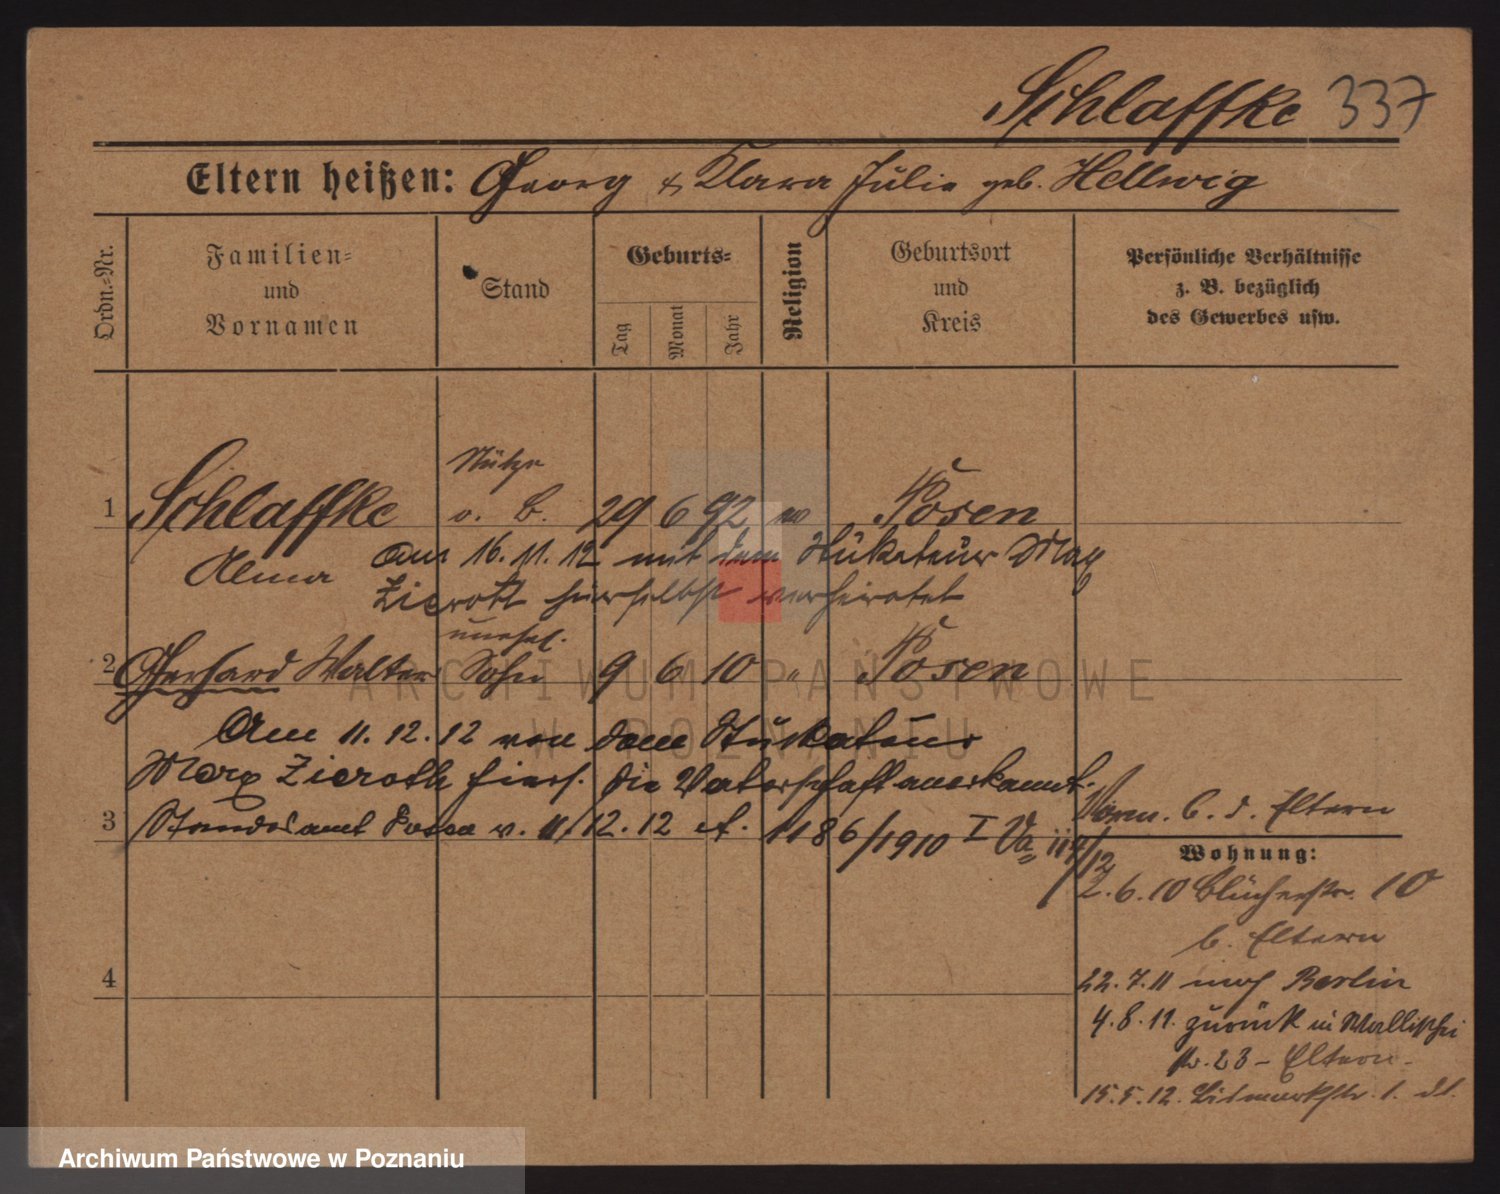 Schlaffke 337
Eltern heißen: Georg & Klara Julie geb. Hellwig
Ordn.-Nr.
Familien-
und
Vornamen
Stand
Geburts-
Tag
Monat
Jahr
Religion
Geburtsort
und
Kreis
Persönliche Verhältnisse
z. B. bezüglich
des Gewerbes usw.
Stütze
1 Schlaffke o. B. 29 6 92 Posen
Alma Am 16. 11. 12 mit dem Stukateur Max
Zieroth hierselbst verheiratet
unehel.
2 Gerhard Walter Sohn 9 6 10 " Posen
Am 11. 12. 12 von dem Stukateur
Max Zieroth hiers. die Vaterschaft anerkannt.
3 Standesamt Posen v. 11/12. 12 1186/1910 I
Vorm. b. d. Eltern
Wohnung:
2. 6. 10 Blücherstr. 10
b. Eltern
22. 7. 11 nach Berlin
4. 8. 11. zurück in Wallischei
str. 23 - Eltern -
15. 5. 12. Bismarckstr. 1.
4
ARCHIWUM PAŃSTWOWE
W POZNANIU
Archiwum Państwowe w Poznaniu